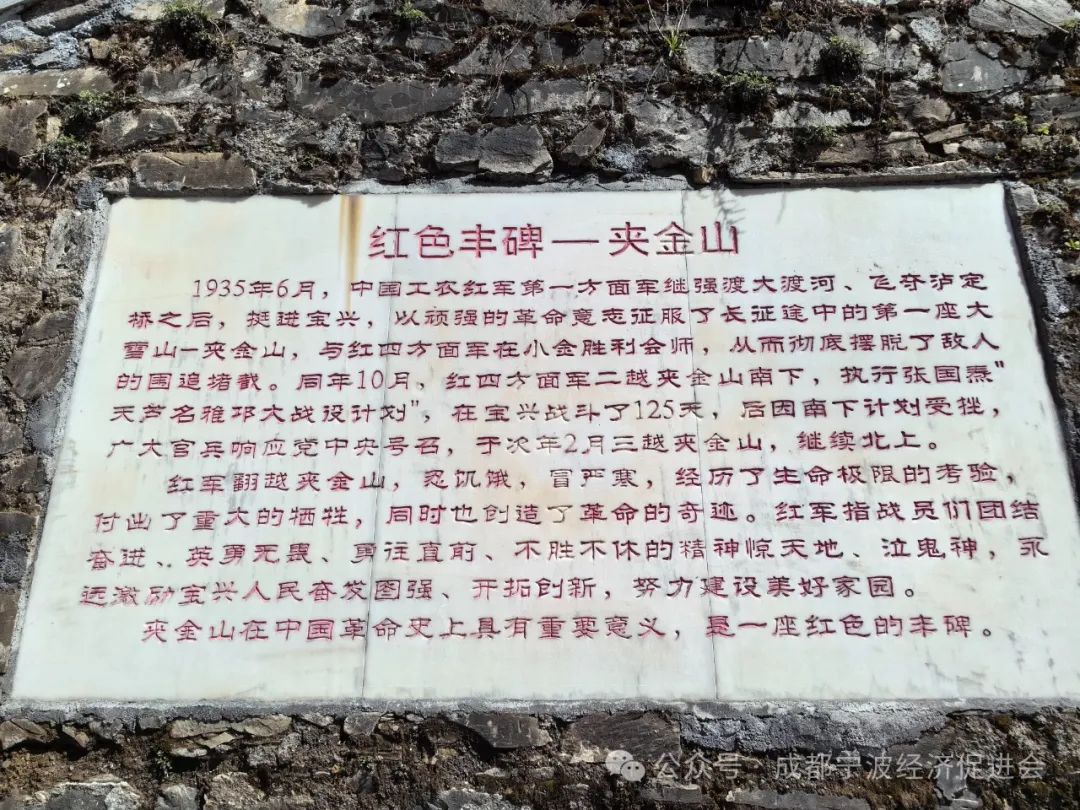 红色丰碑一夹金山
1935年6月，中国工农红军第一方面军继强渡大渡河、飞夺泸定
桥之后，挺进宝兴，以顽强的革命意志征服了长征途中的第一座大
雪山一夹金山，与红四方面军在小金胜利会师，从而彻底摆脱了敌人
的围追堵截。同年10月，红四方面军二越夹金山南下，执行张国焘"
天芦名雅邛大战设计划"，在宝兴战斗了125天，后因南下计划受挫，
广大官兵响应党中央号召，于次年2月三越夹金山，继续北上。
红军翻越夹金山，忍饥饿，冒严寒，经历了生命极限的考验，
付出了重大的牺牲，同时也创造了革命的奇迹。红军指战员们团结
奋进、英勇无畏、勇往直前、不胜不休的精神惊天地、泣鬼神，永
远激励宝兴人民奋发图强、开拓创新，努力建设美好家园。
夹金山在中国革命史上具有重要意义，是一座红色的丰碑。
公众号·成都宁波经济促进会